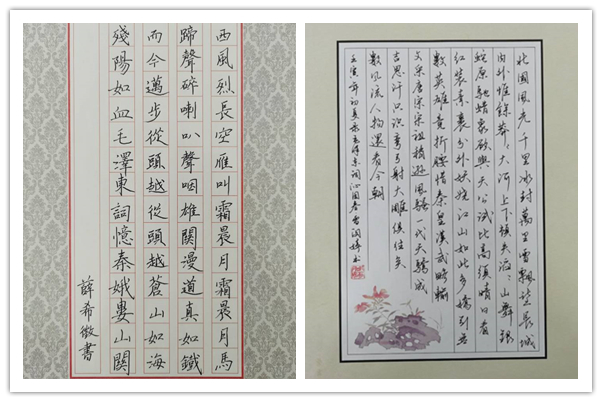 西風烈長空雁叫霜晨月霜晨月馬
蹄聲碎喇叭聲咽雄關漫道真如鐵
而今邁步從頭越從頭越蒼山如海
殘陽如血毛澤東詞憶秦娥婁山關
薛希書
北國風光千里冰封萬里雪飄望長城
内外惟餘莽莽大河上下頓失滔滔山舞銀
蛇原馳蜡象欲與天公試比高須晴日看
紅裝素裹分外妖嬈江山如此多嬌引無
數英雄競折腰惜秦皇漢武略輸
文采唐宗宋祖稍遜風騷一代天驕成
吉思汗只识彎弓射大雕俱往矣
數風流人物還看今朝
壬寅年初夏录毛泽东词沁园春雪书